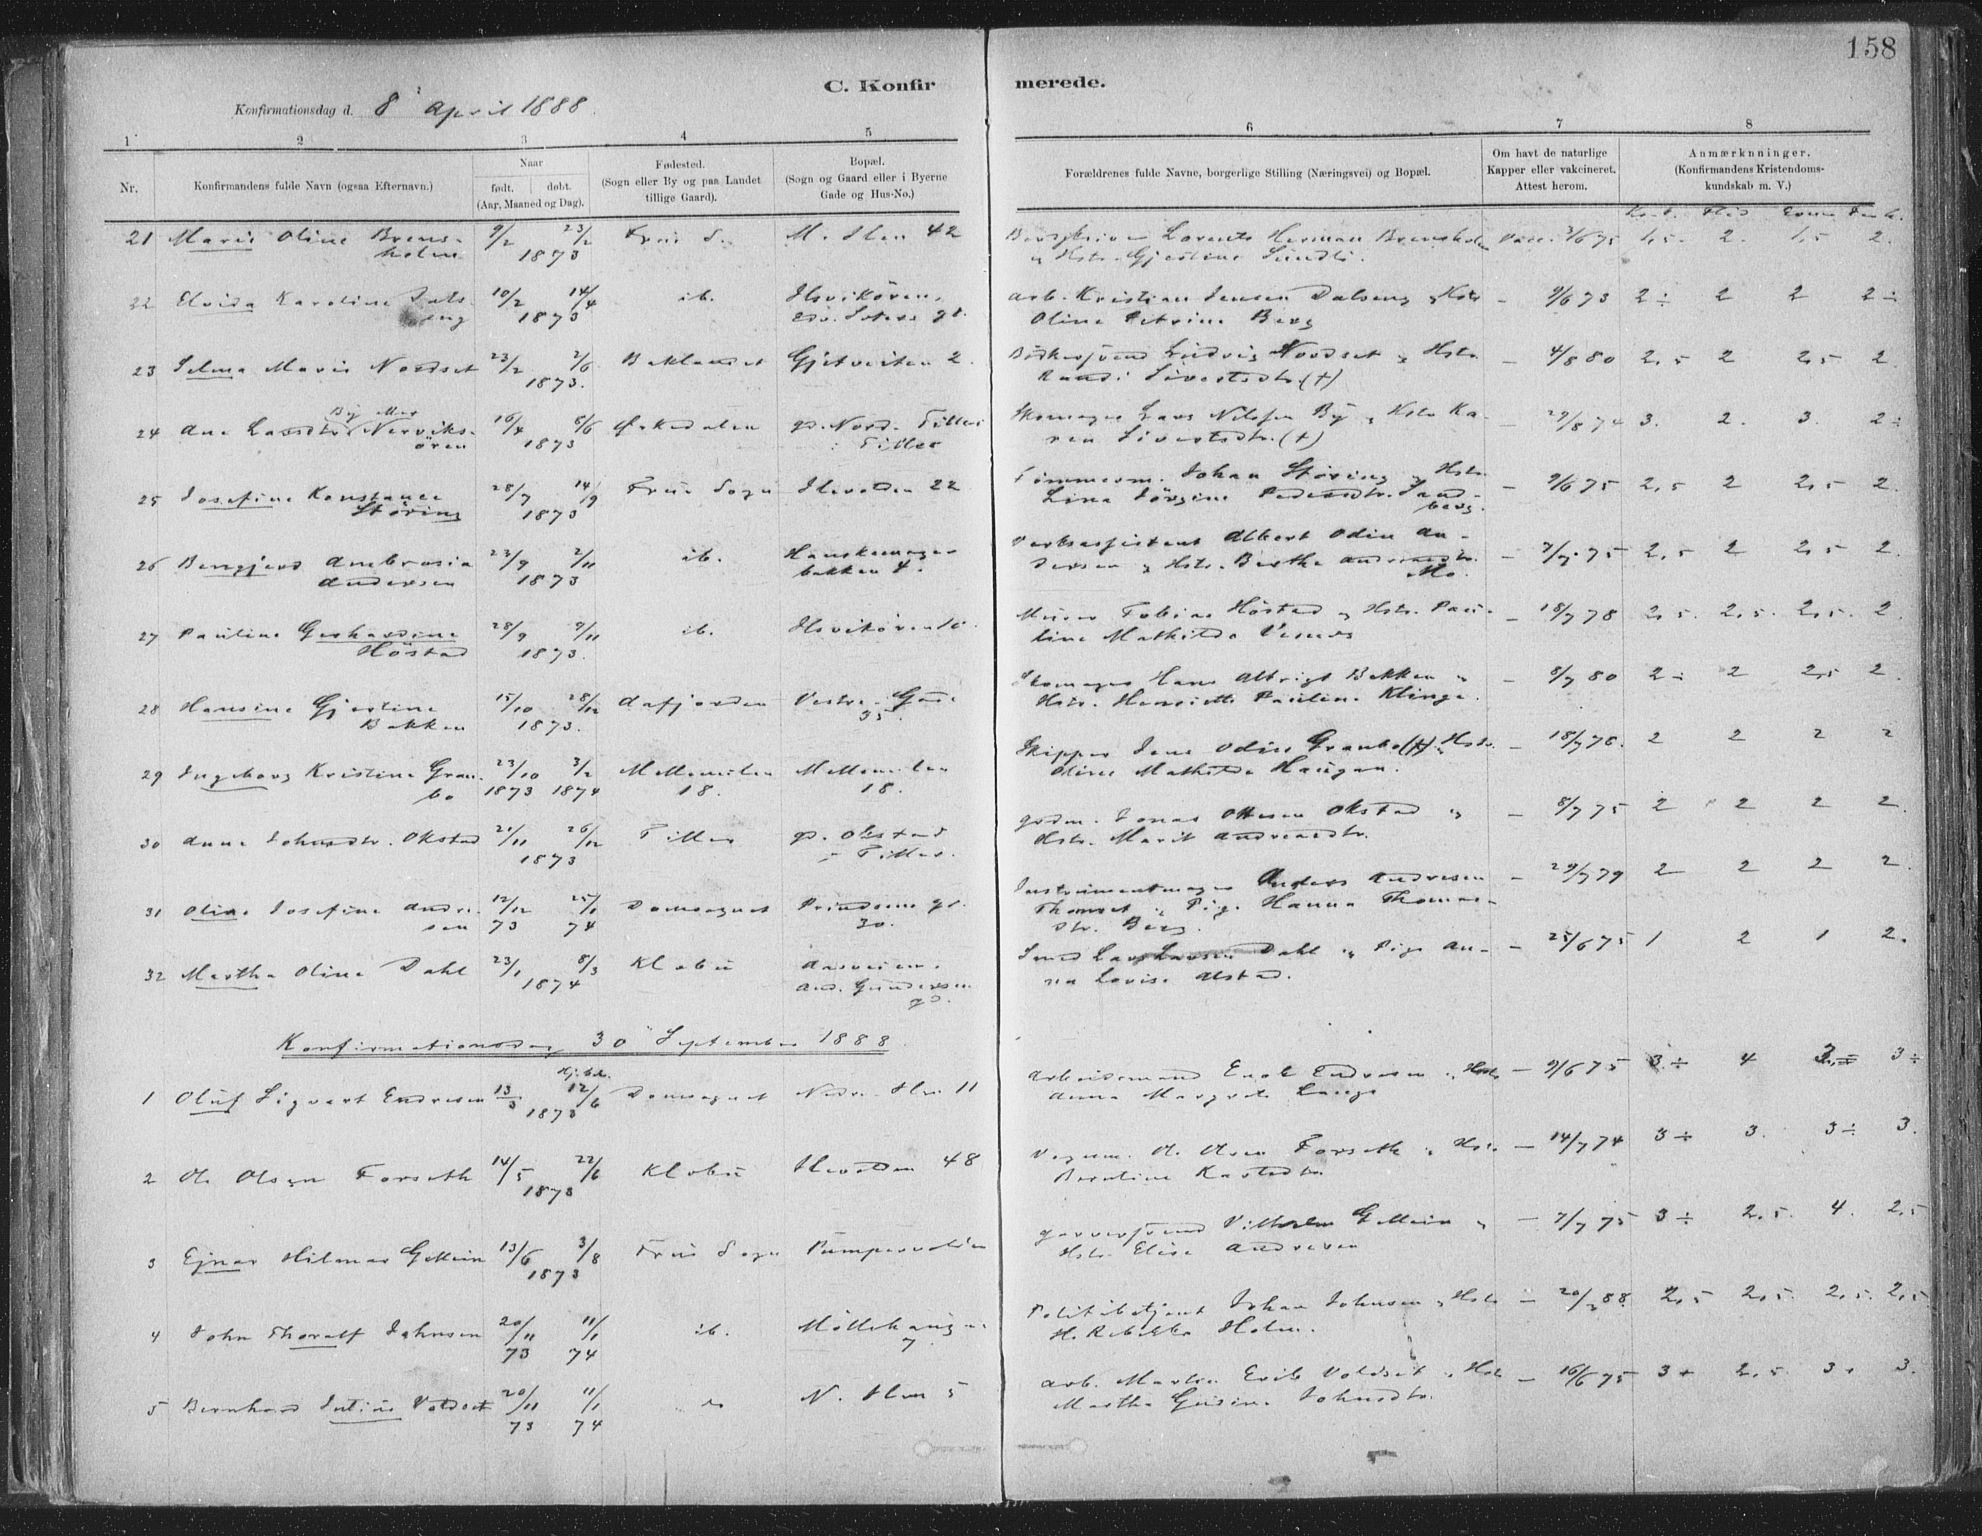 158
C. Konfirmerede.
Konfirmationsdag d. 8 April 1888.
1 2 3 4 5 6 7 8
Nr.
Konfirmandens fulde Navn (ogsaa Efternavn.)
Naar
født. døbt.
(Aar, Maaned og Dag).
Fødested.
(Sogn eller By og paa Landet
tillige Gaard).
Bopæl.
(Sogn og Gaard eller i Byerne
Gade og Hus-No.)
Forældrenes fulde Navne, borgerlige Stilling (Næringsvei) og Bopæl.
Om havt de naturlige
Kapper eller vakcineret.
Attest herom.
Anmærknninger.
(Konfirmandens Kristendoms-
kundskab m. V.)
21 Marie Oline Brems- 9/2 23/2 Frue S. M. Ilen 42 Lorents Herman Bremsholm 3/6 75 1,5. 2. 1,5 2.
holm 1873 Hstr. Gjertine Sundli.
22 Elvida Karoline Dals- 10/2 14/4 ib. Ilsvikøren, arb. Kristian Jensen Dalseng Hstr – 9/6 73 2÷ 2 2 2÷
eng 1873 Oline Petrine Berg
23 Selma Marie Nordset 23/2 2/6 Baklandet Gjetveiten 2. Bødkersvend Ludvig Nordset Hstr. – 4/8 80 2,5 2 2,5 2
1873. Randi Sivertsdtr. (+)
By eller
24 Ane Larsdtr. Nerviks- 16/4 8/6 Ørkedalen gd. Nord. Tiller Skomager Lars Nilssen By Hstr Ka- – 29/8 74 3. 2. 3. 2÷
ören 1873 i Tiller ren Sivertsdtr. (+)
25 Josefine Konstance 28/7 14/9 Frue Sogn Ilevolden 22 Tömmerm. Johan Støring Hstr. – 9/6 75 2,5 2 2,5 2.
Støring 1873 Lina Jörgine Pedersdtr. Sand-
berg.
26 Bergjerd Ambrosia 23/9 2/11 ib. Hanskemager- Verksassistent Albert Odin An- – 7/7 75 2,5 2 2,5 2.
Andersen 1873 bakken 4. dersen Hstr. Berthe Andreasdtr.
Mo.
27 Pauline Gerhardine 28/9 9/11 ib. Murer Tobias Höstad Hstr. Pau- – 18/7 78 2,5. 2,5. 2,5. 2
Höstad 1873. line Mathilde
28 Hansine Gjertine 15/10 28/12 Aafjorden Vestre Gde. Skomager Hans Albrigt Bekken – 8/7 80 2÷ 2 2,5 2.
Bekken 1873. 35. Hstr. Henriette Pauline Klinge.
29 Ingeborg Kristine Gran- 23/10 3/2 Mellemilen Mellemilen Skipper Jens Odin Granbo (+) Hstr. – 18/7 78. 2 2 2 2
bo 1873 1874 18. 18. Oline Mathilde Haugan.
30 Anne Johnsdtr. Okstad 21/11 26/12 Tiller gd. Okstad gdm. Jonas Ottesen Okstad – 8/7 75 2 2 2 2.
1873 i Tiller. Hstr. Marit Andreasdtr.
31 Oline Josefine Andre- 12/12 25/1 Domsognet Prindsens gd. Instrumentmager Anders Andresen – 29/7 79 2 2 2 2.
sen 73 74 30. Pige Hanna Thomas-
dtr. Berg.
32 Martha Oline Dahl 23/1 8/3 Klæbu Aasveien. Smed Lars Larsen Dahl Pige An- – 25/6 75 1 2 1 2.
1874 And. Gundersen na Lovise Alstad.
gd.
Konfirmationsdag 30 September 1888
Hj. dbt.
1 Oluf Sigvart Endresen 13/3 12/6 Domsognet Nedre Ilen 11 Arbeidsmand Endresen Hstr – 9/6 75 3÷ 4 3÷
1873 Anna Margrete Lange
2 Ole Olsen Forseth 14/5 22/6 Klæbu Ilevolden 48 Vognm. O. Olsen Forseth Hstr. – 14/7 74 3÷ 3. 3÷ 3.
1873 Beratine
3 Ejnar Hilmar Gellein 13/6 3/8 Frue Sogn garversvend Vilhelm Gellein – 7/7 75 3÷ 2,5. 4. 2,5
1873 Hstr. Elise Andresen
4 John Thoralf Johnsen 20/11 11/1 ib. Möllebakken Politibetjent Johan Johnsen Hstr – 20/3 88. 2,5 2,5. 2,5. 2,5
73 74 7. H. Rebekka Holm.
5 Bernhard Julius Voldset 20/11 11/1 do N. Ilen 5 arb. Martin Erik Voldset Hstr – 16/6 75 3+ 2,5 3+ 3.
73 74 Martha Johnsdtr.